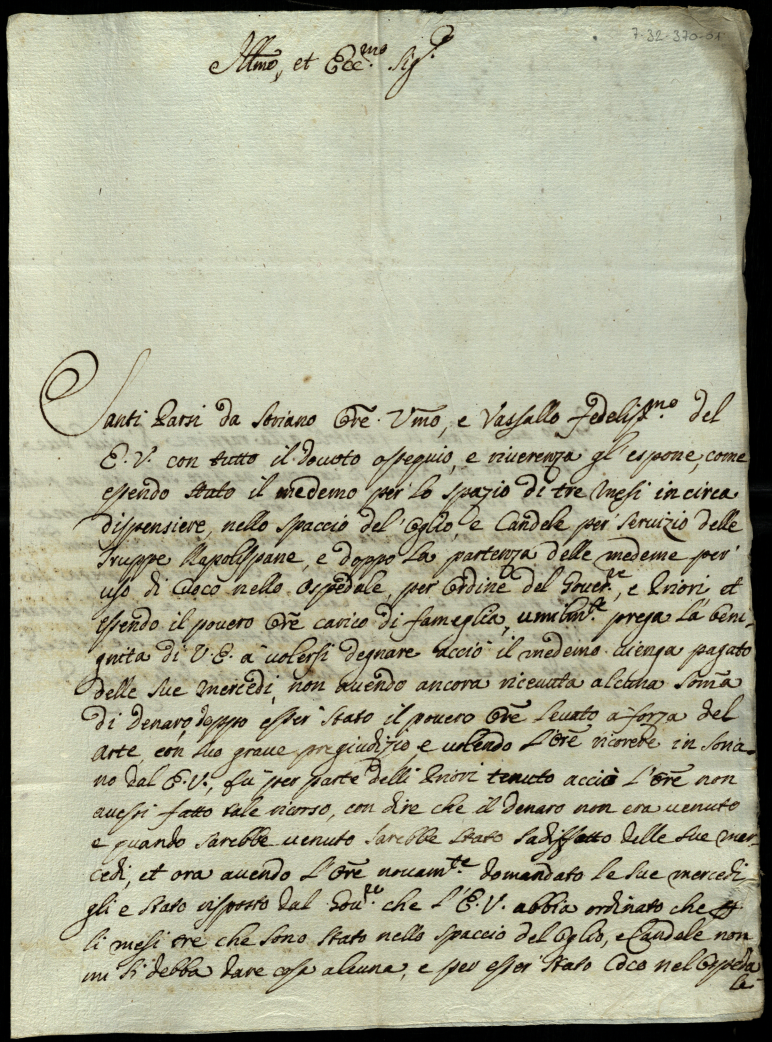 7-32-370-01
Illmo, et Ecc.mo Sig.r
Santi Parsi da Soriano Ore. Vmo, e Vassallo fedeliss.mo del
E. V. con tutto il douoto ossequio, e riuerenza gl'espone, come
essendo stato il medemo per lo spazio di tre mesi in circa
dispensiere, nello spaccio del' Oglio, e Candele per seruizio delle
Truppe Napolispane, e doppo la partenza delle medeme per
uso di Cuoco nello Ospedale, per Ordine del Gouer.re, e Priori et
essendo il pouero Ore carico di fameglia, umilm.te prega la beni-
gnita di V. E. a volersi degnare acciò il medemo uienga pagato
delle sue mercedi, non auendo ancora riceuuta alcuna soma
di denaro, doppo esser stato il pouero Ore leuato a forza del
arte, con suo graue pregiudizio, e uolendo l'Ore ricorere in Soria-
no dal E. V., fù per parte delli Priori tenuto acciò l'Ore non
auessi fatto tale ricorso, con dire che il denaro non era uenuto
e quando sarebbe uenuto sarebbe stato sadisfatto delle sue mer-
cedi, et ora auendo l'Ore nouam.te domandato le sue mercedi
gli e stato risposto dal Gou.re che l'E. V. abbia ordinato che
li mesi tre che sono stato nello spaccio del Oglio, e Candele non
mi si debba dare cosa alcuna, e per esser stato Coco nel Ospeda
le